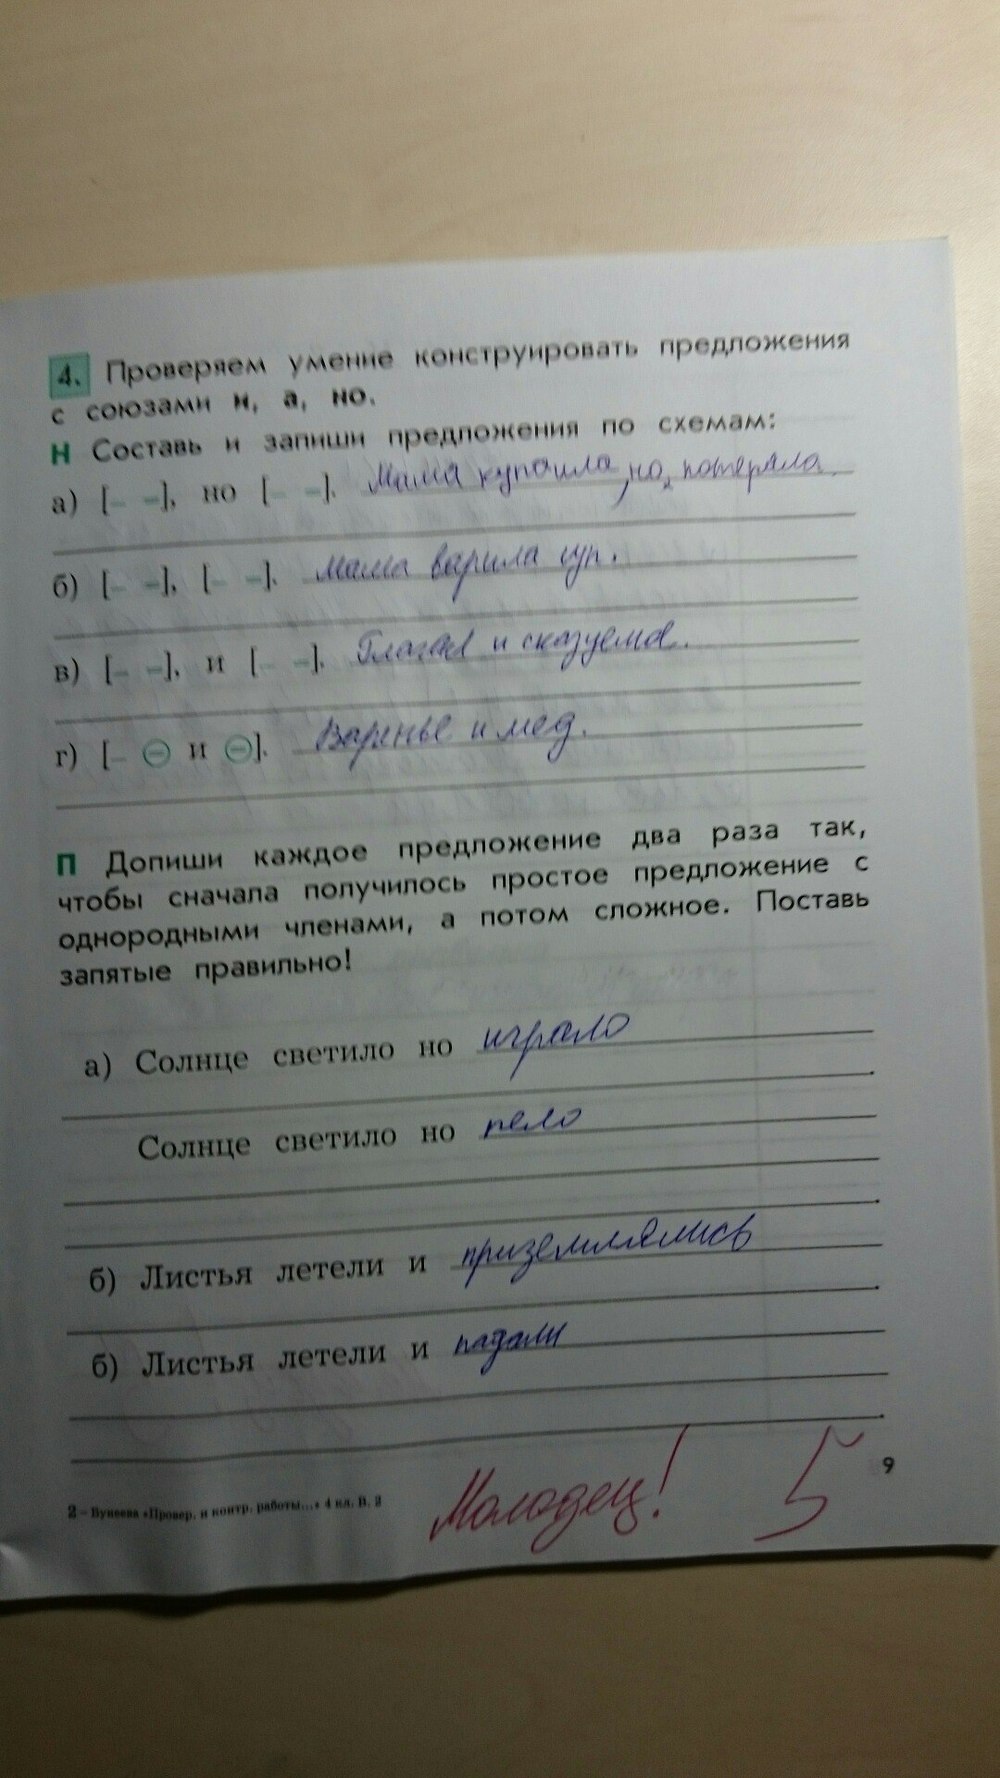 4. Проверяем умение конструировать предложения
с союзами и, а, но.
Н Составь и запиши предложения по схемам:
а) [– –], но [– –]. Мама купила, но, потеряла.
б) [– –], [– –]. Мама варила суп.
в) [– –], и [– –]. Глагол и сказуемое.
г) [– ⊖ и ⊖]. Варенье и мед.
П Допиши каждое предложение два раза так,
чтобы сначала получилось простое предложение с
однородными членами, а потом сложное. Поставь
запятые правильно!
а) Солнце светило но играло
Солнце светило но пело
б) Листья летели и приземлялись
б) Листья летели и падали
Молодец! 5
9
2 – Бунеева «Провер. и контр. работы...» 4 кл. В. 2